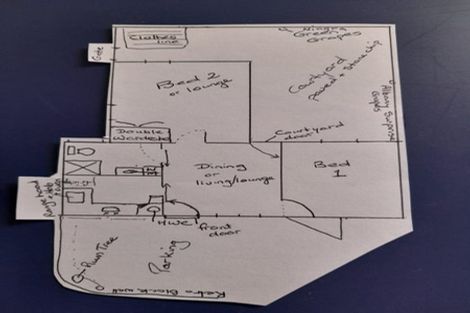 Clothes
line
Niagra
Green
Grapes
Gate
Bed 2
or lounge
Courtyard
paved + stonechip
Albany Surprise
Grapes
Double
Wardrobe
Courtyard
door
Dining
or
living/lounge
Bed
1
HWC
front
door
Parking
Plum Tree
Retro Block wall